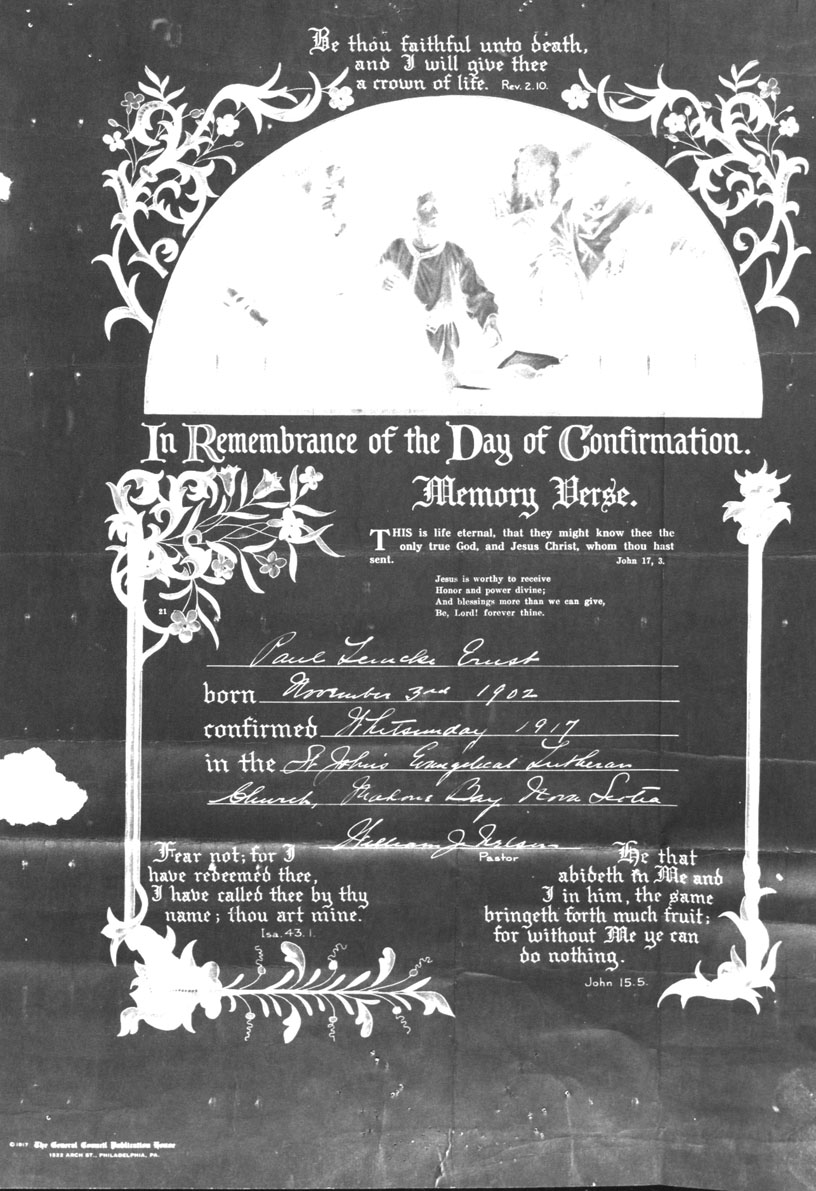 Be thou faithful unto death,
and I will give thee
a crown of life. Rev. 2.10.
In Remembrance of the Day of Confirmation.
Memory Verse.
THIS is life eternal, that they might know thee the
only true God, and Jesus Christ, whom thou hast
sent. John 17, 3.
Jesus is worthy to receive
Honor and power divine;
And blessings more than we can give,
Be, Lord! forever thine.
21
Paul Ernst
born November 3rd 1902
confirmed Whitsunday 1917
in the St John's Evangelical Lutheran
Church, Mahone Bay Nova Scotia
William J.
Pastor
Fear not; for I
have redeemed thee,
I have called thee by thy
name; thou art mine.
Isa. 43. 1.
He that
abideth in Me and
I in him, the same
bringeth forth much fruit;
for without Me ye can
do nothing.
John 15. 5.
©1917 The General Council Publication House
1522 ARCH ST., PHILADELPHIA, PA.